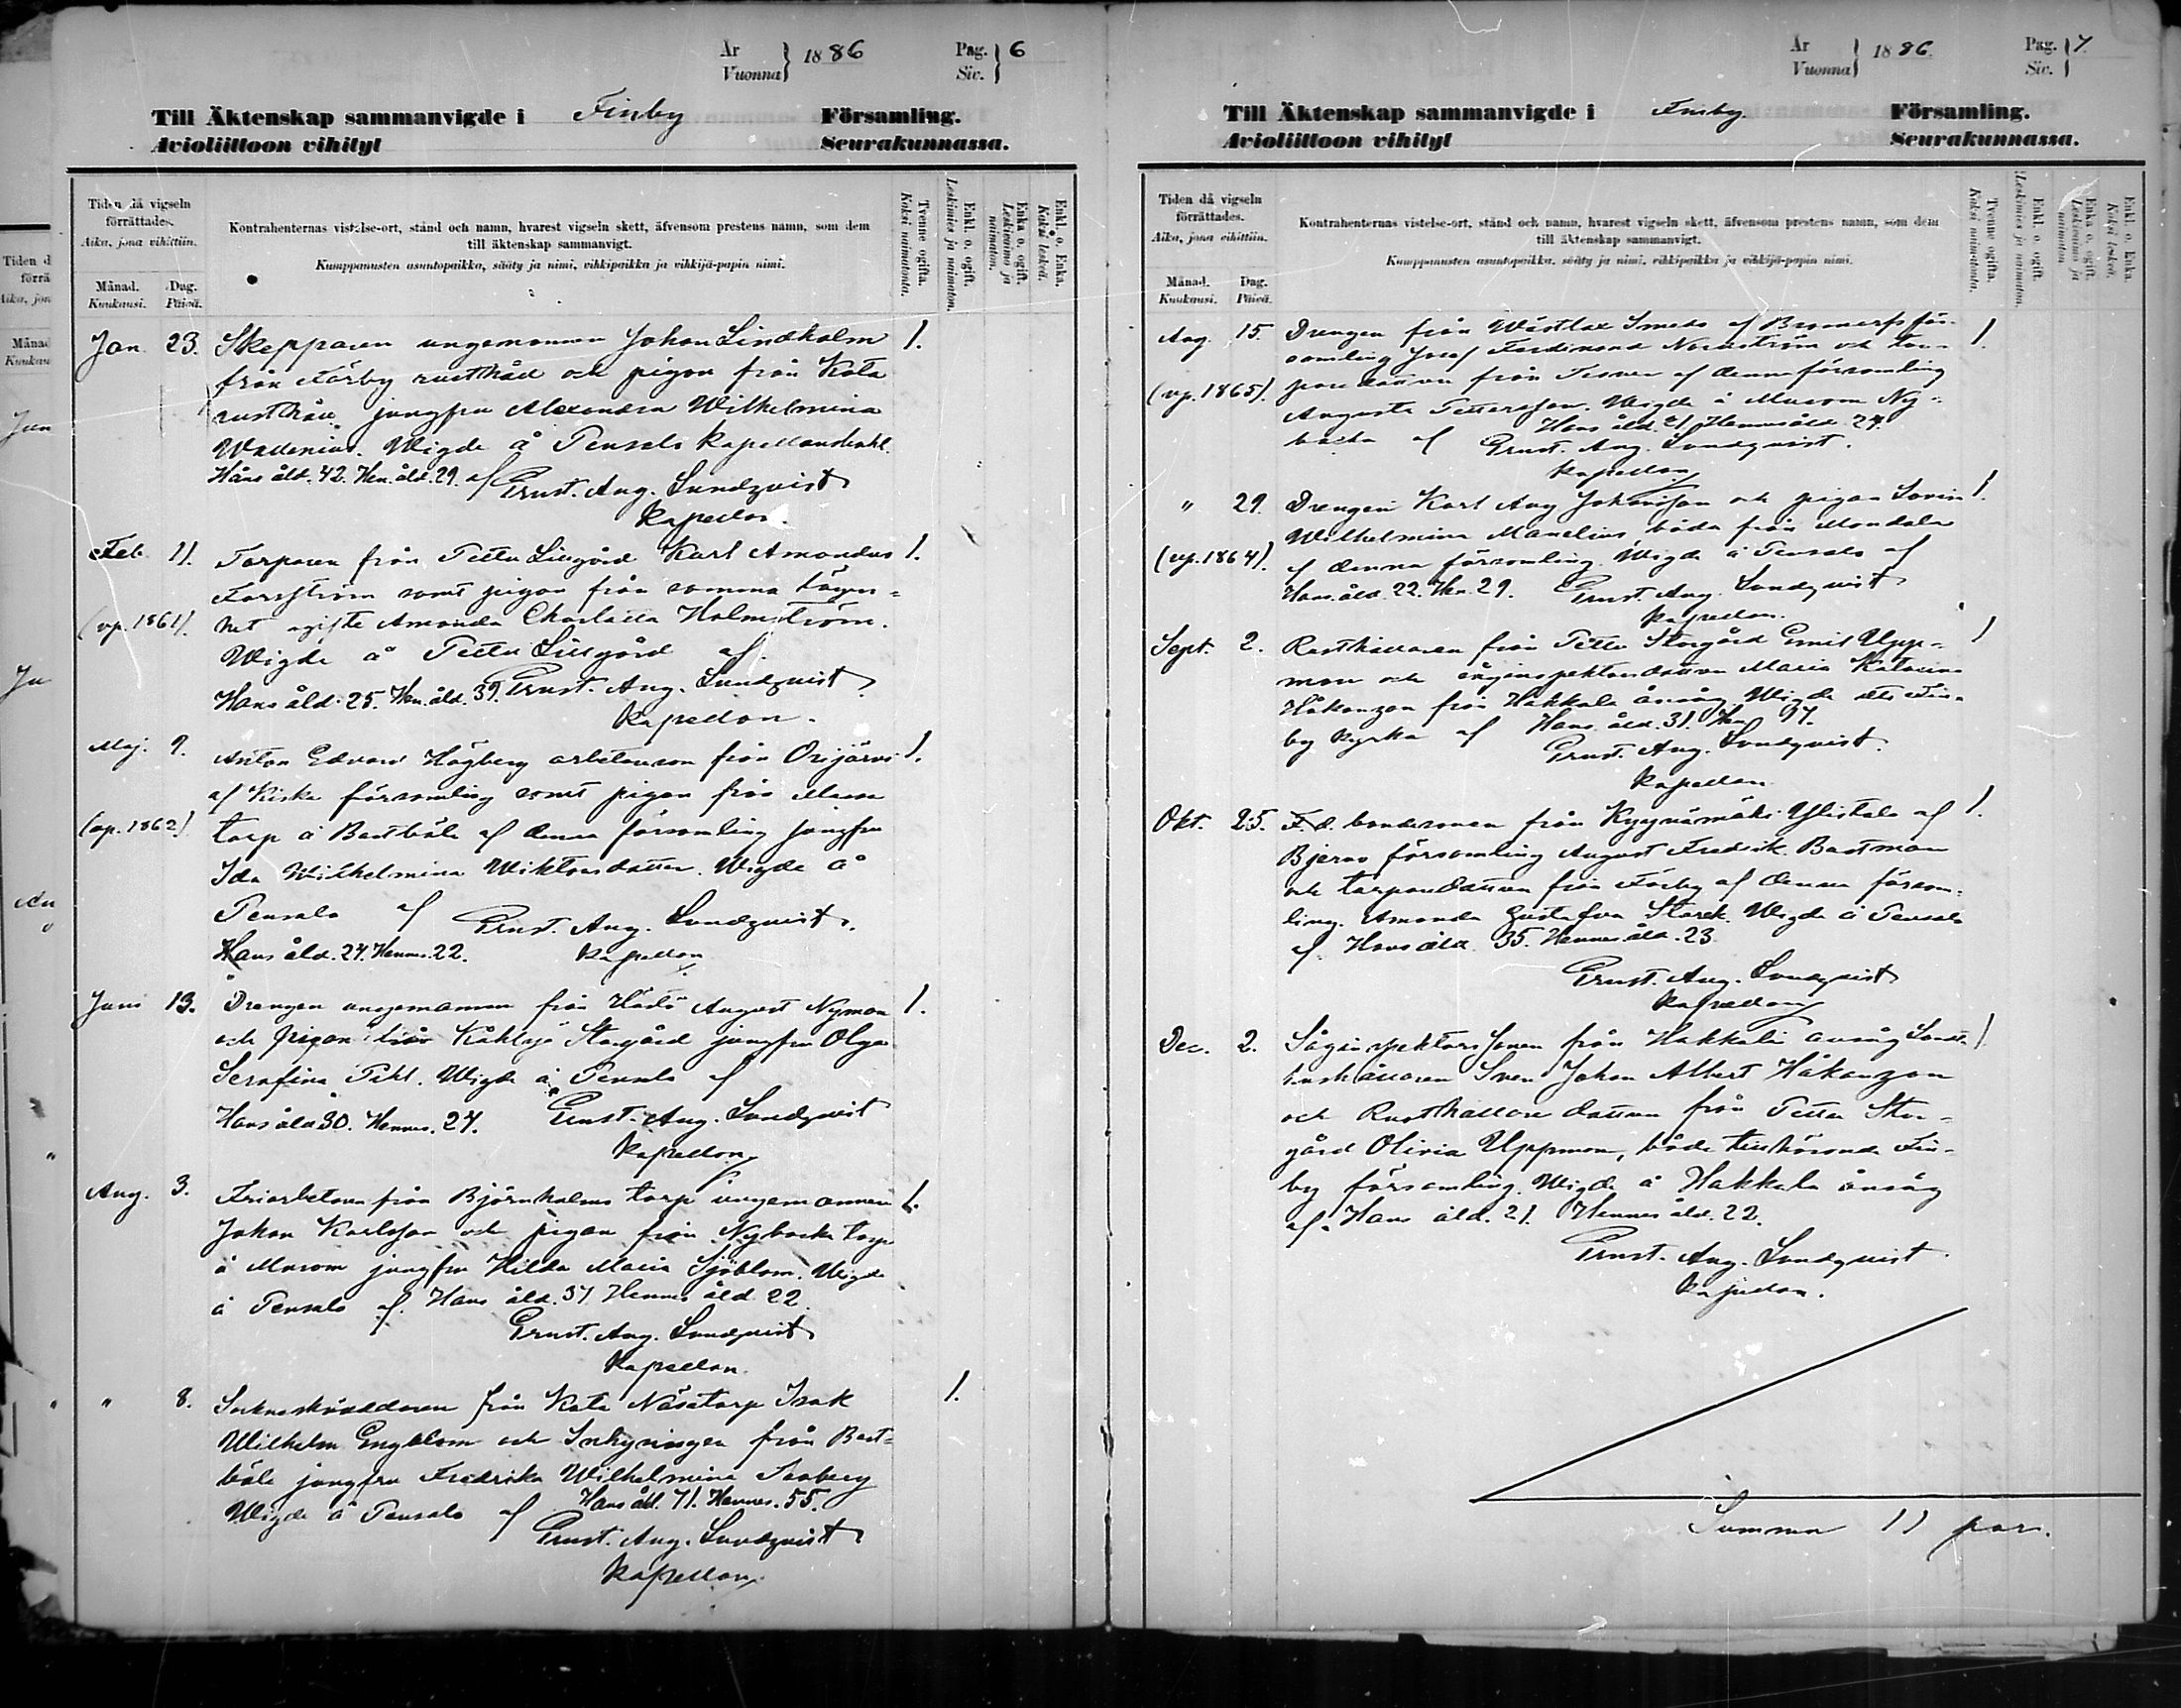 År
Vuonna } 1886
Pag.
Siv. } 6
Till Äktenskap sammanvigde i Finby Församling.
Avioliittoon vihityt Seurakunnassa.
Tiden då vigseln förrättades.
Aika, jona vihittiin.
Månad.
Kuukausi.
Dag.
Päivä.
Kontrahenternas vistelse-ort, stånd och namn, hvarest vigseln skett, äfvensom prestens namn, som dem
till äktenskap sammanvigt.
Kumppanusten asuntopaikka, sääty ja nimi, vihkipaikka ja vihkijä-papin nimi.
Tvenne ogifta.
Kaksi naimatonta.
Enkl. o. ogift.
Leskimies ja naimaton.
Enka o. ogift.
Leskivaimo ja naimaton.
Enkl. o. Enka.
Kaksi leskeä.
Jan. 23. Skepparen ungemannen Johan Lindholm 1.
från Förby rusthåll och pigan från Kata
rusthåll jungfru Alexandra Wilhelmina
Wadenius. Wigde å Pensala kapellansbohl.
Hans åld. 42. Hen. åld. 29. af Ernst. Aug. Lundqvist
Kapellan.
Feb. 11. Torparen från Pettu Lillgård Karl Amandus 1.
Forsström samt pigan från samma lägen=
(vp. 1861). het ogifte Amanda Charlotta Holmström.
Wigde å Pettu Lillgård af
Hans åld. 25. Hen. åld. 39. Ernst. Aug. Lundqvist
Kapellan.
Maj. 9. Anton Edvard Högberg arbetareson från Orijärvi 1.
af Kisko församling samt pigan från
(vp. 1862) torp å Bastböle af denna församling jungfru
Ida Wilhelmina Wiktorsdotter. Wigde å
Pensala af Ernst. Aug. Lundqvist.
Hans åld. 24. Hennes. 22. Kapellan
Juni 13. Drengen ungemannen från August Nyman 1.
och pigan från Storgård jungfru Olga
Serafina Pihl. Wigde å Pensala af
Hans åld 30. Hennes. 24. Ernst. Aug. Lundqvist
Kapellan.
Aug. 3. Friarbetaren från Björnholms torp ungemannen 1.
Johan Karlsson och pigan från Nybacka torp
å Murom jungfru Hilda Maria Sjöblom. Wigde
å Pensala af. Hans åld. 37 Hennes åld 22.
Ernst. Aug. Lundqvist
Kapellan.
" 8. Socknskräddaren från Kata Näsätorp Isak 1.
Wilhelm Engblom och Inhysingen från Bast=
böle jungfru Fredrika Wilhelmina
Wigde å Pensala af Hans åld. 71. Hennes. 55.
Ernst. Aug. Lundqvist
Kapellan.
År
Vuonna } 1886
Pag.
Siv. } 7
Till Äktenskap sammanvigde i Finby Församling.
Avioliittoon vihityt Seurakunnassa.
Tiden då vigseln förrättades.
Aika, jona vihittiin.
Månad.
Kuukausi.
Dag.
Päivä.
Kontrahenternas vistelse-ort, stånd och namn, hvarest vigseln skett, äfvensom prestens namn, som dem
till äktenskap sammanvigt.
Kumppanusten asuntopaikka, sääty ja nimi, vihkipaikka ja vihkijä-papin nimi.
Tvenne ogifta.
Kaksi naimatonta.
Enkl. o. ogift.
Leskimies ja naimaton.
Enka o. ogift.
Leskivaimo ja naimaton.
Enkl. o. Enka.
Kaksi leskeä.
Aug. 15. Drengen från Westlax Smeds af Bromarfs för- 1.
samling Josef Ferdinand Nordström och tor-
(vp. 1865). paredottren från af denna församling
Augusta Pettersson. Wigde å Murom Ny-
backa af Hans åld. 21 Hennes åld. 24.
Ernst. Aug. Lundqvist.
Kapellan
" 29. Drengen Karl Aug Johansson och pigan Lovisa 1.
Wilhelmina Manelius båda från
(vp. 1864). af denna församling. Wigde å Pensala af
Hans. åld. 22. Hen. 29. Ernst. Aug. Lundqvist
Kapellan.
Sept. 2. Rusthållaren från Pettu Storgård Emil Upp- 1
man och såginspektorsdottren Maria Katarina
Håkanzon från Hakkala ångsåg. Wigde uti Fin-
by Kyrka af Hans åld. 31. Hen
Ernst. Aug. Lundqvist.
Kapellan
Okt. 25. F.d. bondesonen från Kyynämäki Ylistalo af 1.
Bjerno församling August Fredrik Bastman
och torparedottren från Förby af denna försam-
ling. Amanda Gustafva Starck. Wigde å Pensala
af. Hans åld. 35. Hennes åld. 23.
Ernst. Aug. Lundqvist
Kapellan
Dec. 2. Såginspektors Sonen från Hakkala ångsåg 1
Sven Johan Albert Håkanzon
och Rusthållare dottren från Pettu Stor-
gård Olivia Uppman, båda tillhörande Fin-
by församling. Wigde å Hakkala ångsåg
af. Hans åld. 21. Hennes åld. 22.
Ernst. Aug. Lundqvist.
Kapellan.
Summa 11 par.